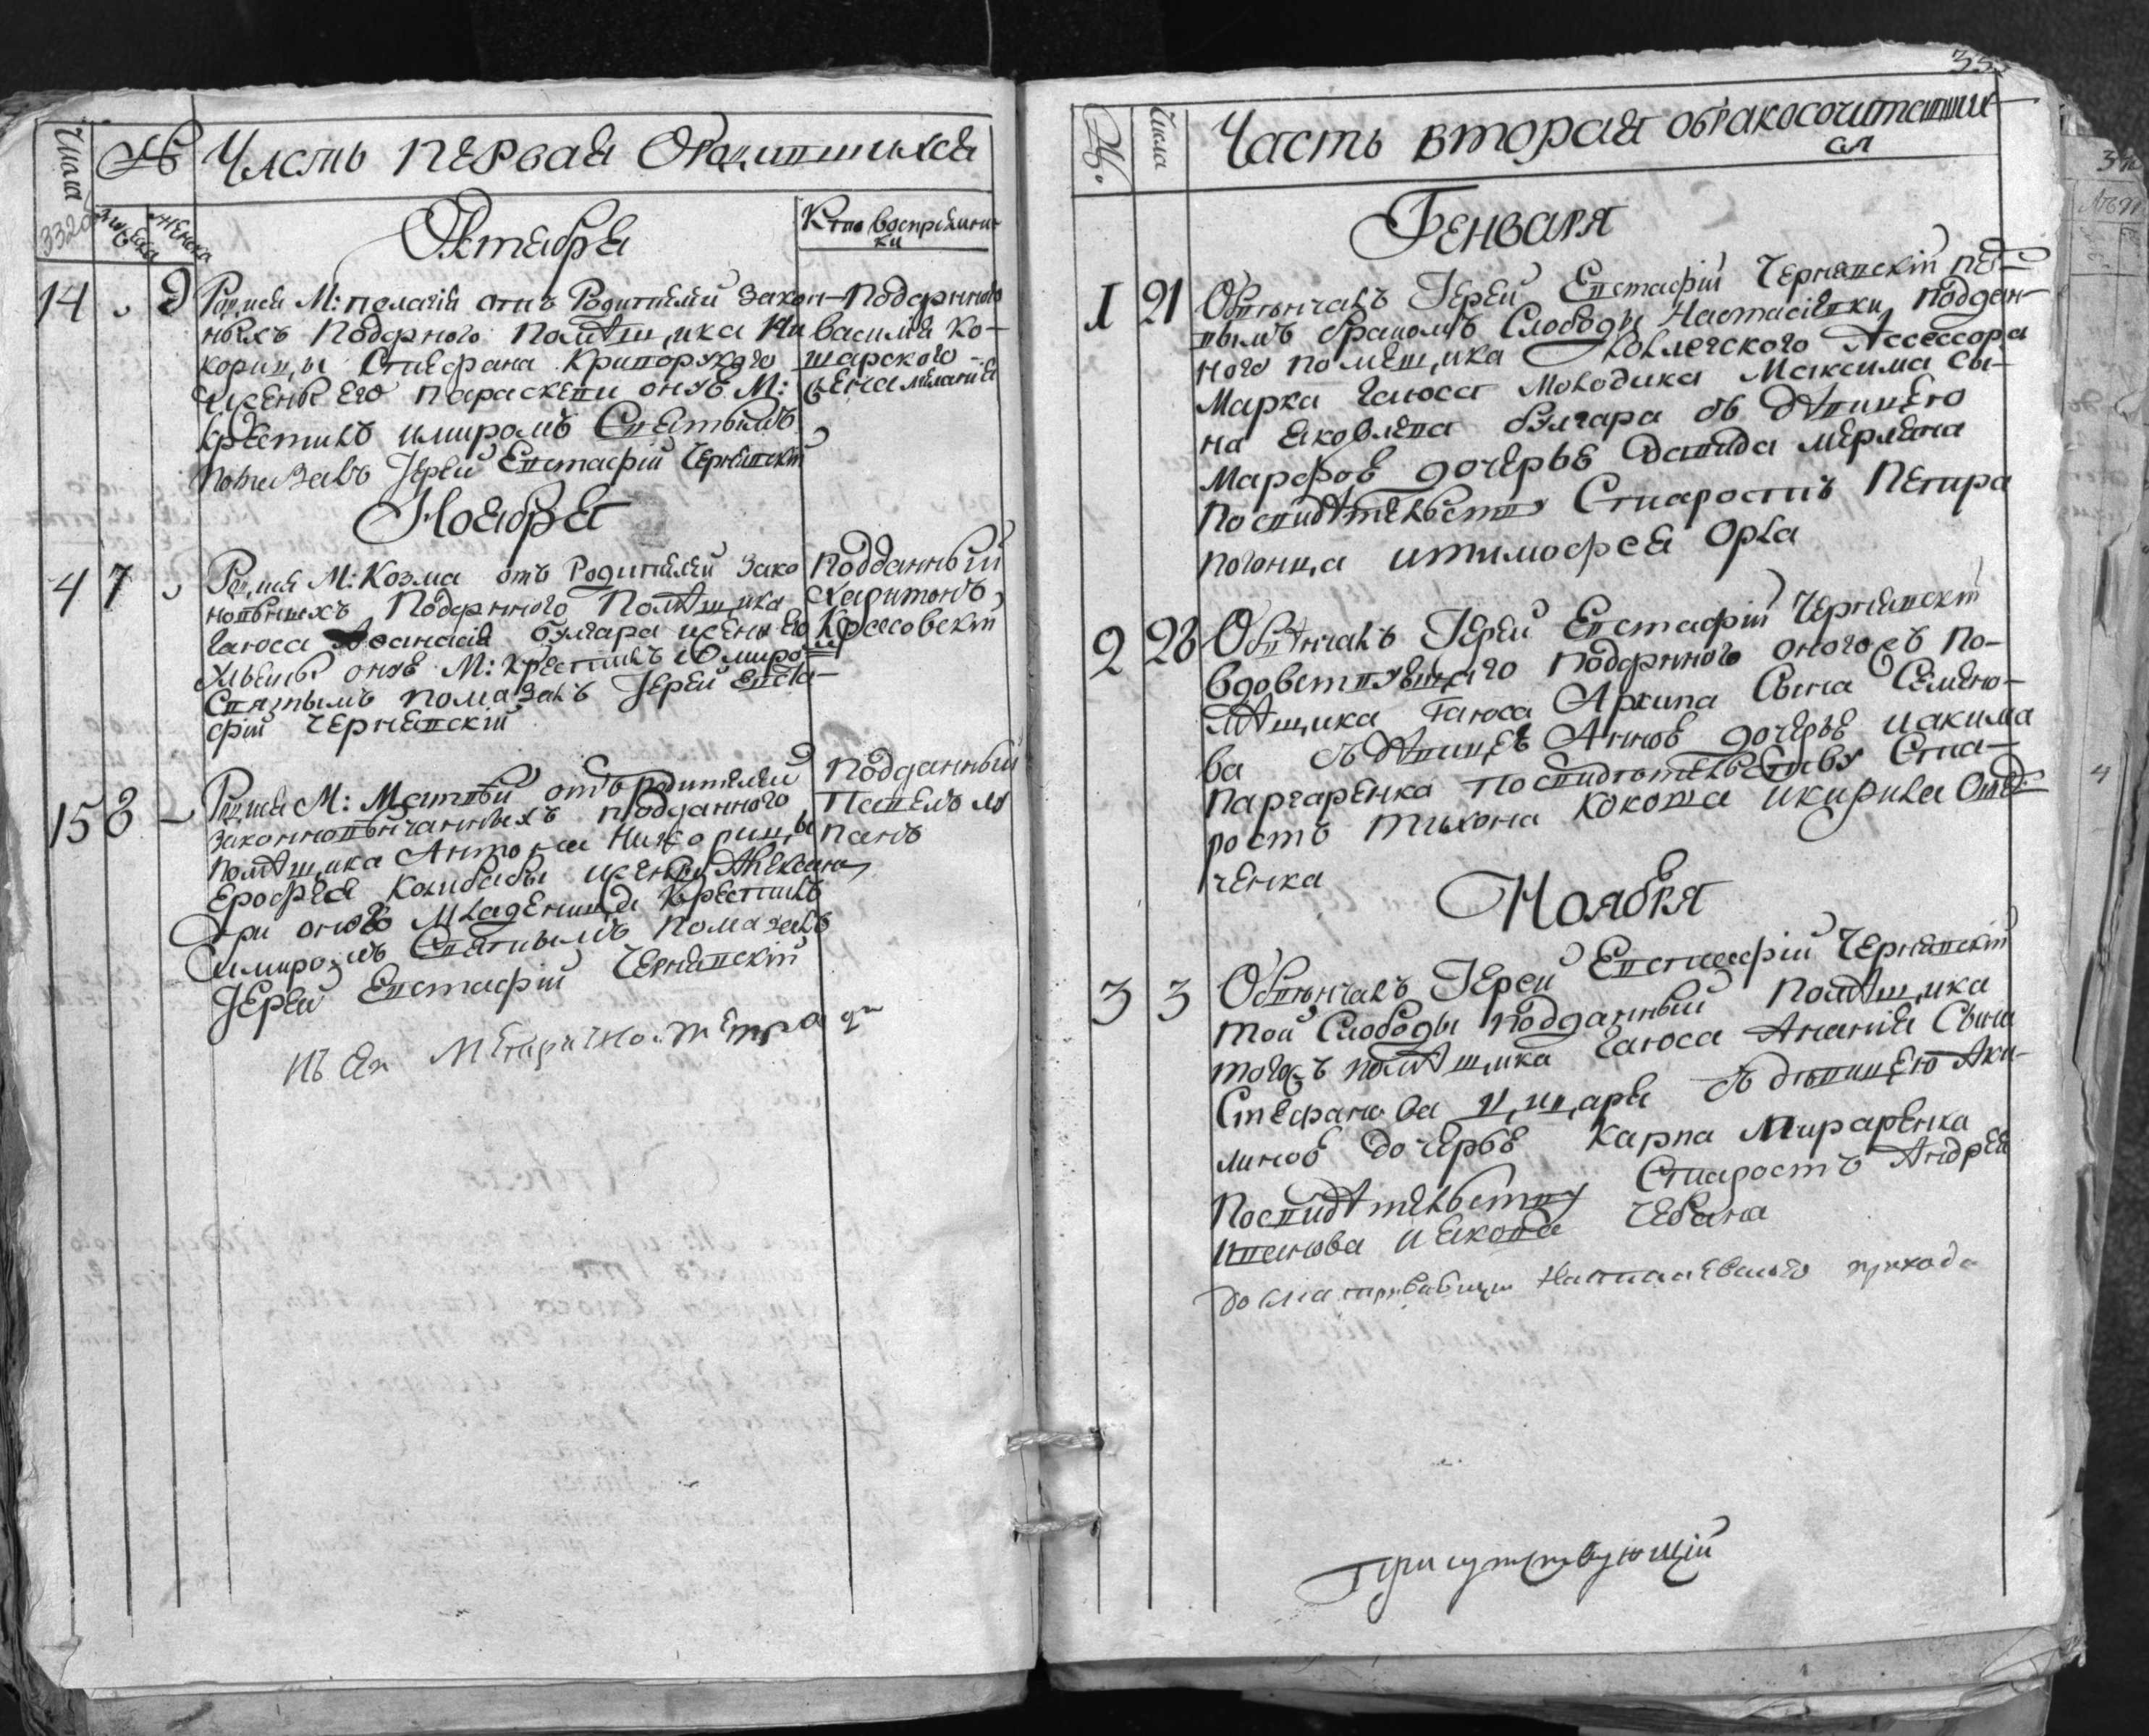 Числа
№
Часть первая Ораждшихся
332 об
Мужеска
Женска
Октября
Кто восприемни-
ки
14 9
Родися М: Пелагія отъ Родителей Закон-
ныхъ Подданного Помѣщика Ни
корицы Стефана Криворукого
Жены его Параскеви оную М:
Крестилъ и миромъ Святымъ
Помазалъ Іерей Евстафій Чернявскій
Подданного
Василія Ко-
шарского
жена Меланія
Ноября
4 7
Родися М: Козма отъ Родителей Зако
новѣнчыхъ Подданного Помѣщика
Гаюса Афанасія Булгара и жены его
оное М: Крестилъ и миро
Святымъ помазалъ Іерей Евста-
фій Чернявскій
Подданный
Харитонъ
Красовскій
15 8
Родися М: Матвей отъ родителей
законновѣнчанныхъ подданного
Помѣщика Антона Никорицы
Ерофея Колибабы и жены Александ
ри оного Младенца Крестилъ
и миромъ Святымъ помазалъ
Іерей Евстафій Чернявскій
Подданный
Павелъ
панъ
333
№.
Числа
Часть вторая обракосочитавших
ся
Генваря
1 21
Обвѣнчалъ Іерей Евстафій Чернявскій пер-
вымъ бракомъ Слободы Настасіевки Поддан-
ного помещика Коллегского Ассессора
Марка Гаюса Молодика Максима Сы-
на Яковлева Булгара зъ дѣвицею
Марфою дочерью Давида Мерляна
Посвидѣтельству Старостъ Петра
Погонца и Тимофея Орла
2 28
Обвѣнчалъ Іерей Евстафій Чернявскій
вдовствующаго подданного оногожъ По-
мѣщика Гаюса Архипа Сына Семено-
ва зъ дѣвицею Анною дочерью Иакима
Паргаренка Посвидѣтельству Ста-
ростъ Тихона Кокоша и Кирила
ченка
Ноября
3 3
Обвѣнчалъ Іерей Евстафій Чернявскій
той Слободы подданный Помѣщика
тогожъ помѣщика Гаюса Ананія Сына
Стефанова зъ дѣвицею Аки-
линою дочерью Карпа Мираренка
Посвидѣтельству Старостъ Андрея
Иванова и Якова Чебана
Настасіевского прихода
Присутствующій